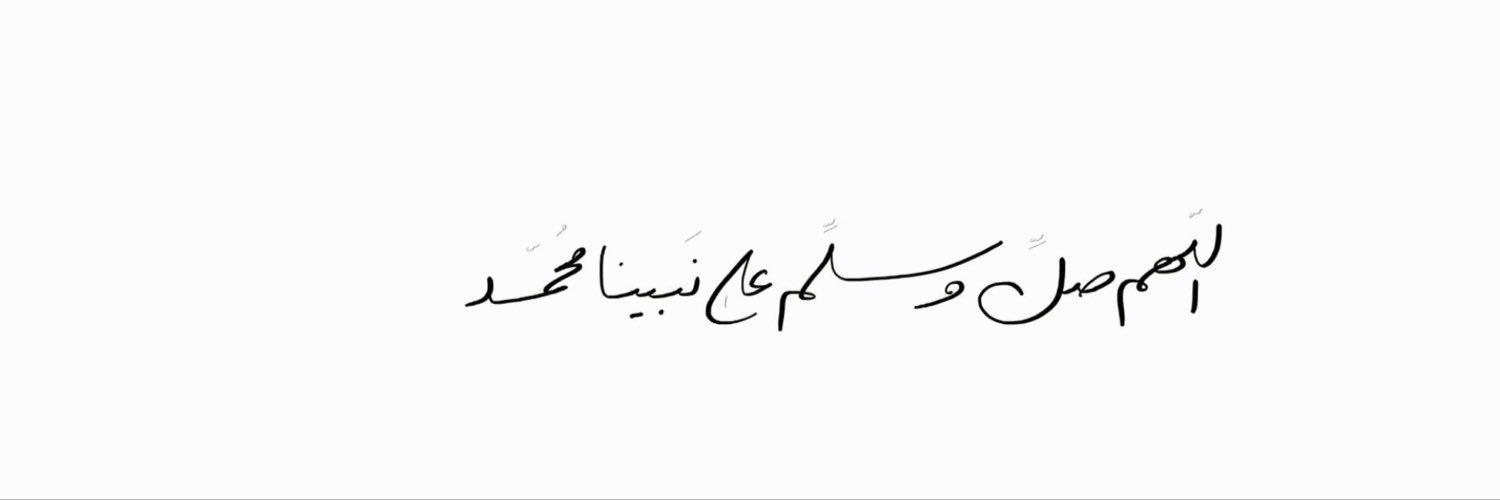 اللّهم صلِّ وسلِّم على نَبينا مُحمّد